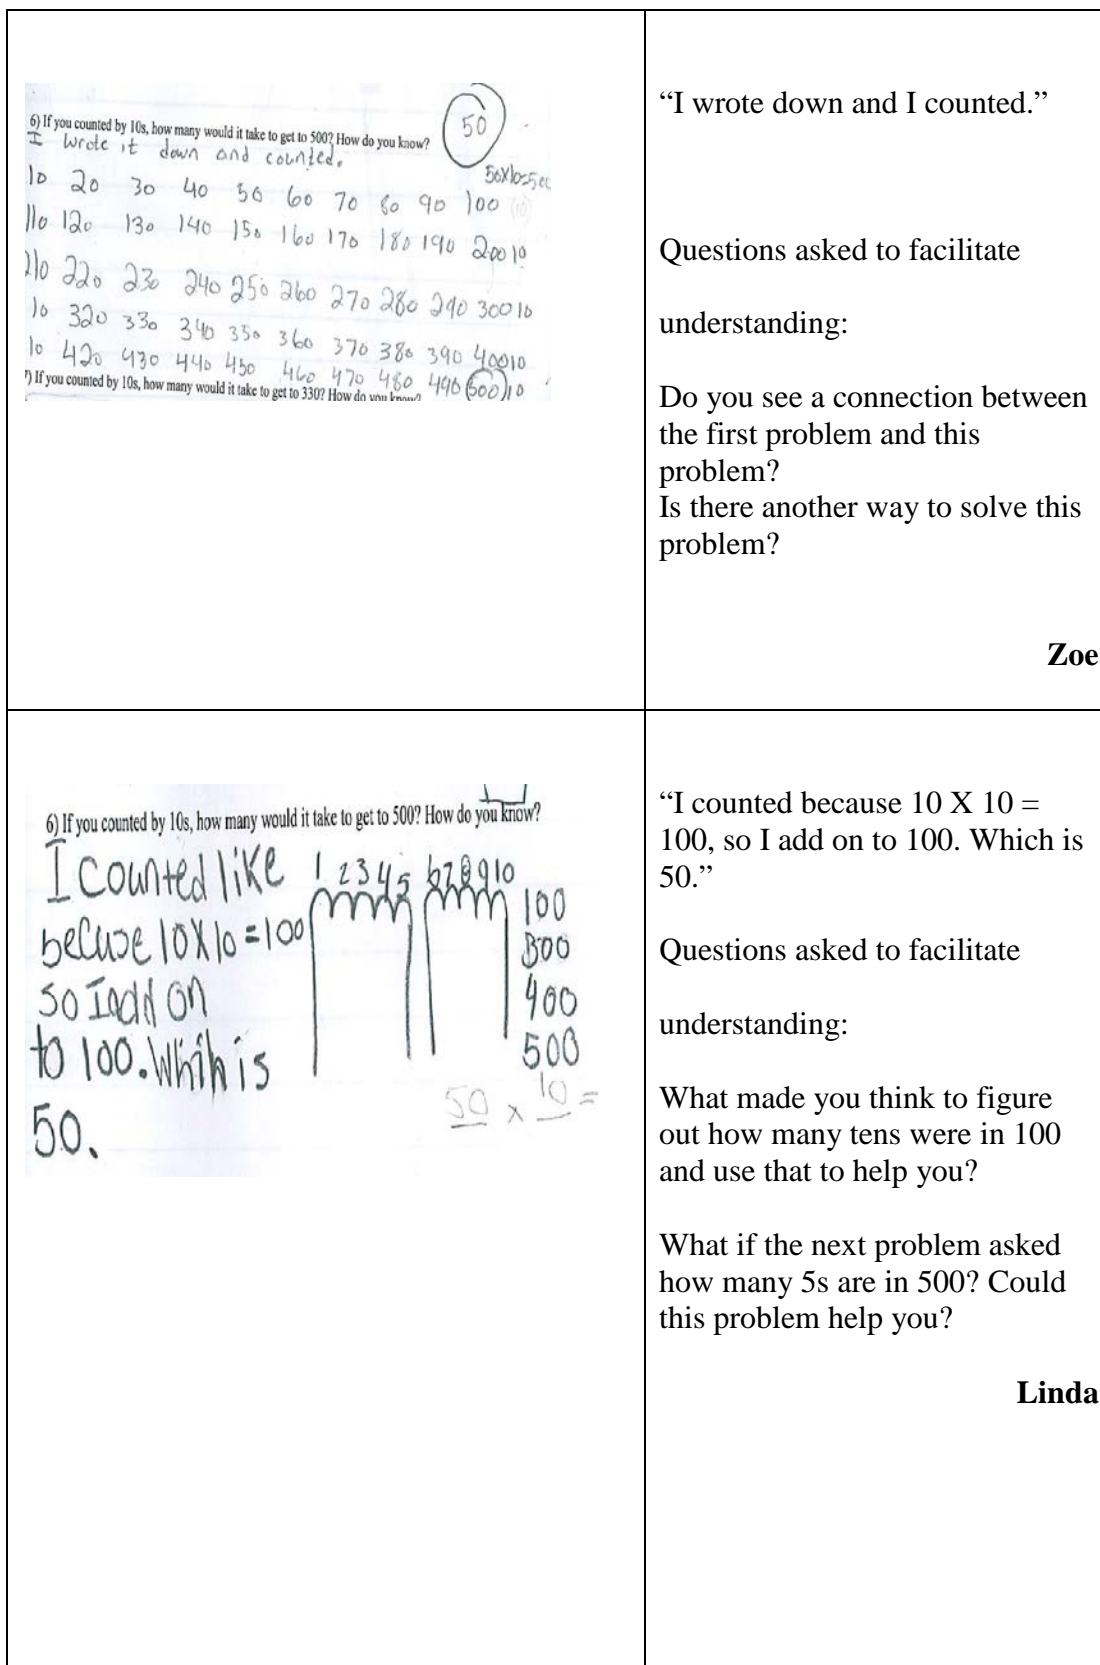 6) If you counted by 10s, how many would it take to get to 500? How do you know?
50
I wrote it down and counted.
50x10=500
10 20 30 40 50 60 70 80 90 100 (10)
110 120 130 140 150 160 170 180 190 200 10
210 220 230 240 250 260 270 280 290 300 10
10 320 330 340 350 360 370 380 390 400 10
10 420 430 440 450 460 470 480 490 500 10
7) If you counted by 10s, how many would it take to get to 330? How do you know?
“I wrote down and I counted.”
Questions asked to facilitate
understanding:
Do you see a connection between
the first problem and this
problem?
Is there another way to solve this
problem?
Zoe
6) If you counted by 10s, how many would it take to get to 500? How do you know?
I counted like
becuse 10X10=100
so I add on
to 100. Whih is
50.
1 2 3 4 5 6 7 8 9 10
100
300
400
500
50 x 10 =
“I counted because 10 X 10 =
100, so I add on to 100. Which is
50.”
Questions asked to facilitate
understanding:
What made you think to figure
out how many tens were in 100
and use that to help you?
What if the next problem asked
how many 5s are in 500? Could
this problem help you?
Linda